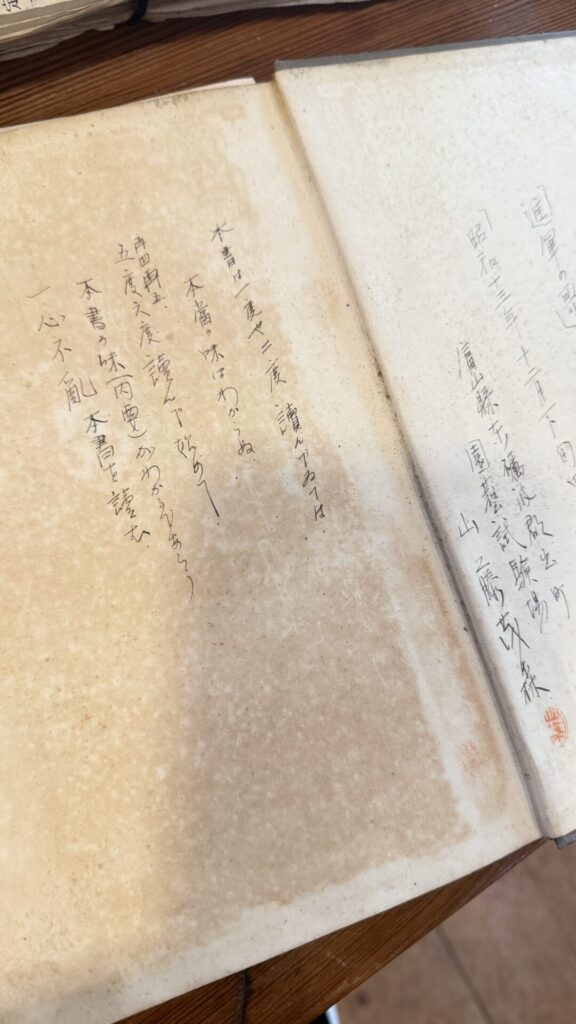 「進軍の歌」
「昭和十三年 十二月下旬
富山縣東礪波郡出町
園藝試験場
本書は一度や二度 讀んでゐては
本當の味はわからぬ.
再四再五、
五度六度 讀んで始めて
本書の味(内要)がわかるであらう
一心不亂 本書を讀む.